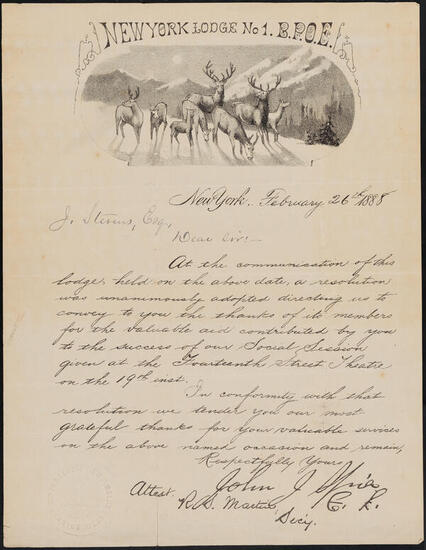 NEW YORK LODGE No 1. B.P.O.E.
New York, February 26th 1888
J. Stevens, Esq,
Dear Sir:-
At the communication of this
lodge, held on the above date, a resolution
was unanimously adopted directing us to
convey to you the thanks of its members
for the valuable aid contributed by you
to the success of our Social Session
given at the Fourteenth Street Theatre
on the 19th inst.
In conformity with that
resolution we tender you our most
grateful thanks for your valuable services
on the above named occasion and remain,
Respectfully Yours
John J.
Attest E. R.
R. S. Martin,
Secy.